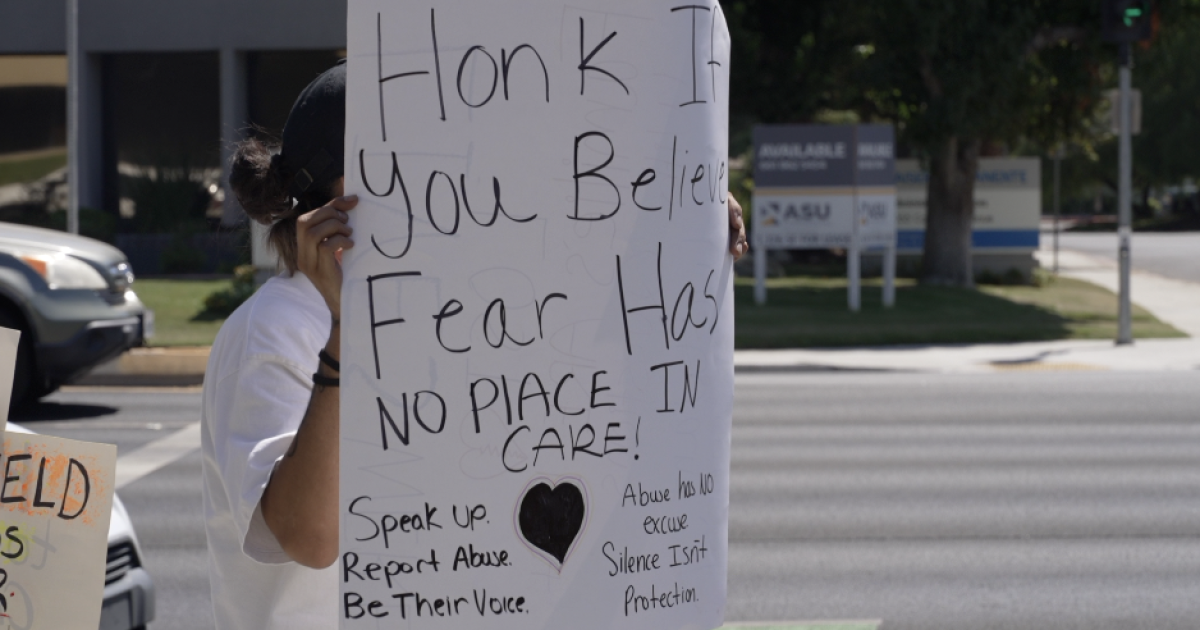 Honk If
You Believe
Fear Has
NO PlACE IN
CARE!
Speak up.
Report Abuse.
Be Their Voice.
Abuse has NO
excuse
Silence Isn't
Protection.
ELD
AVAILABLE
ASU